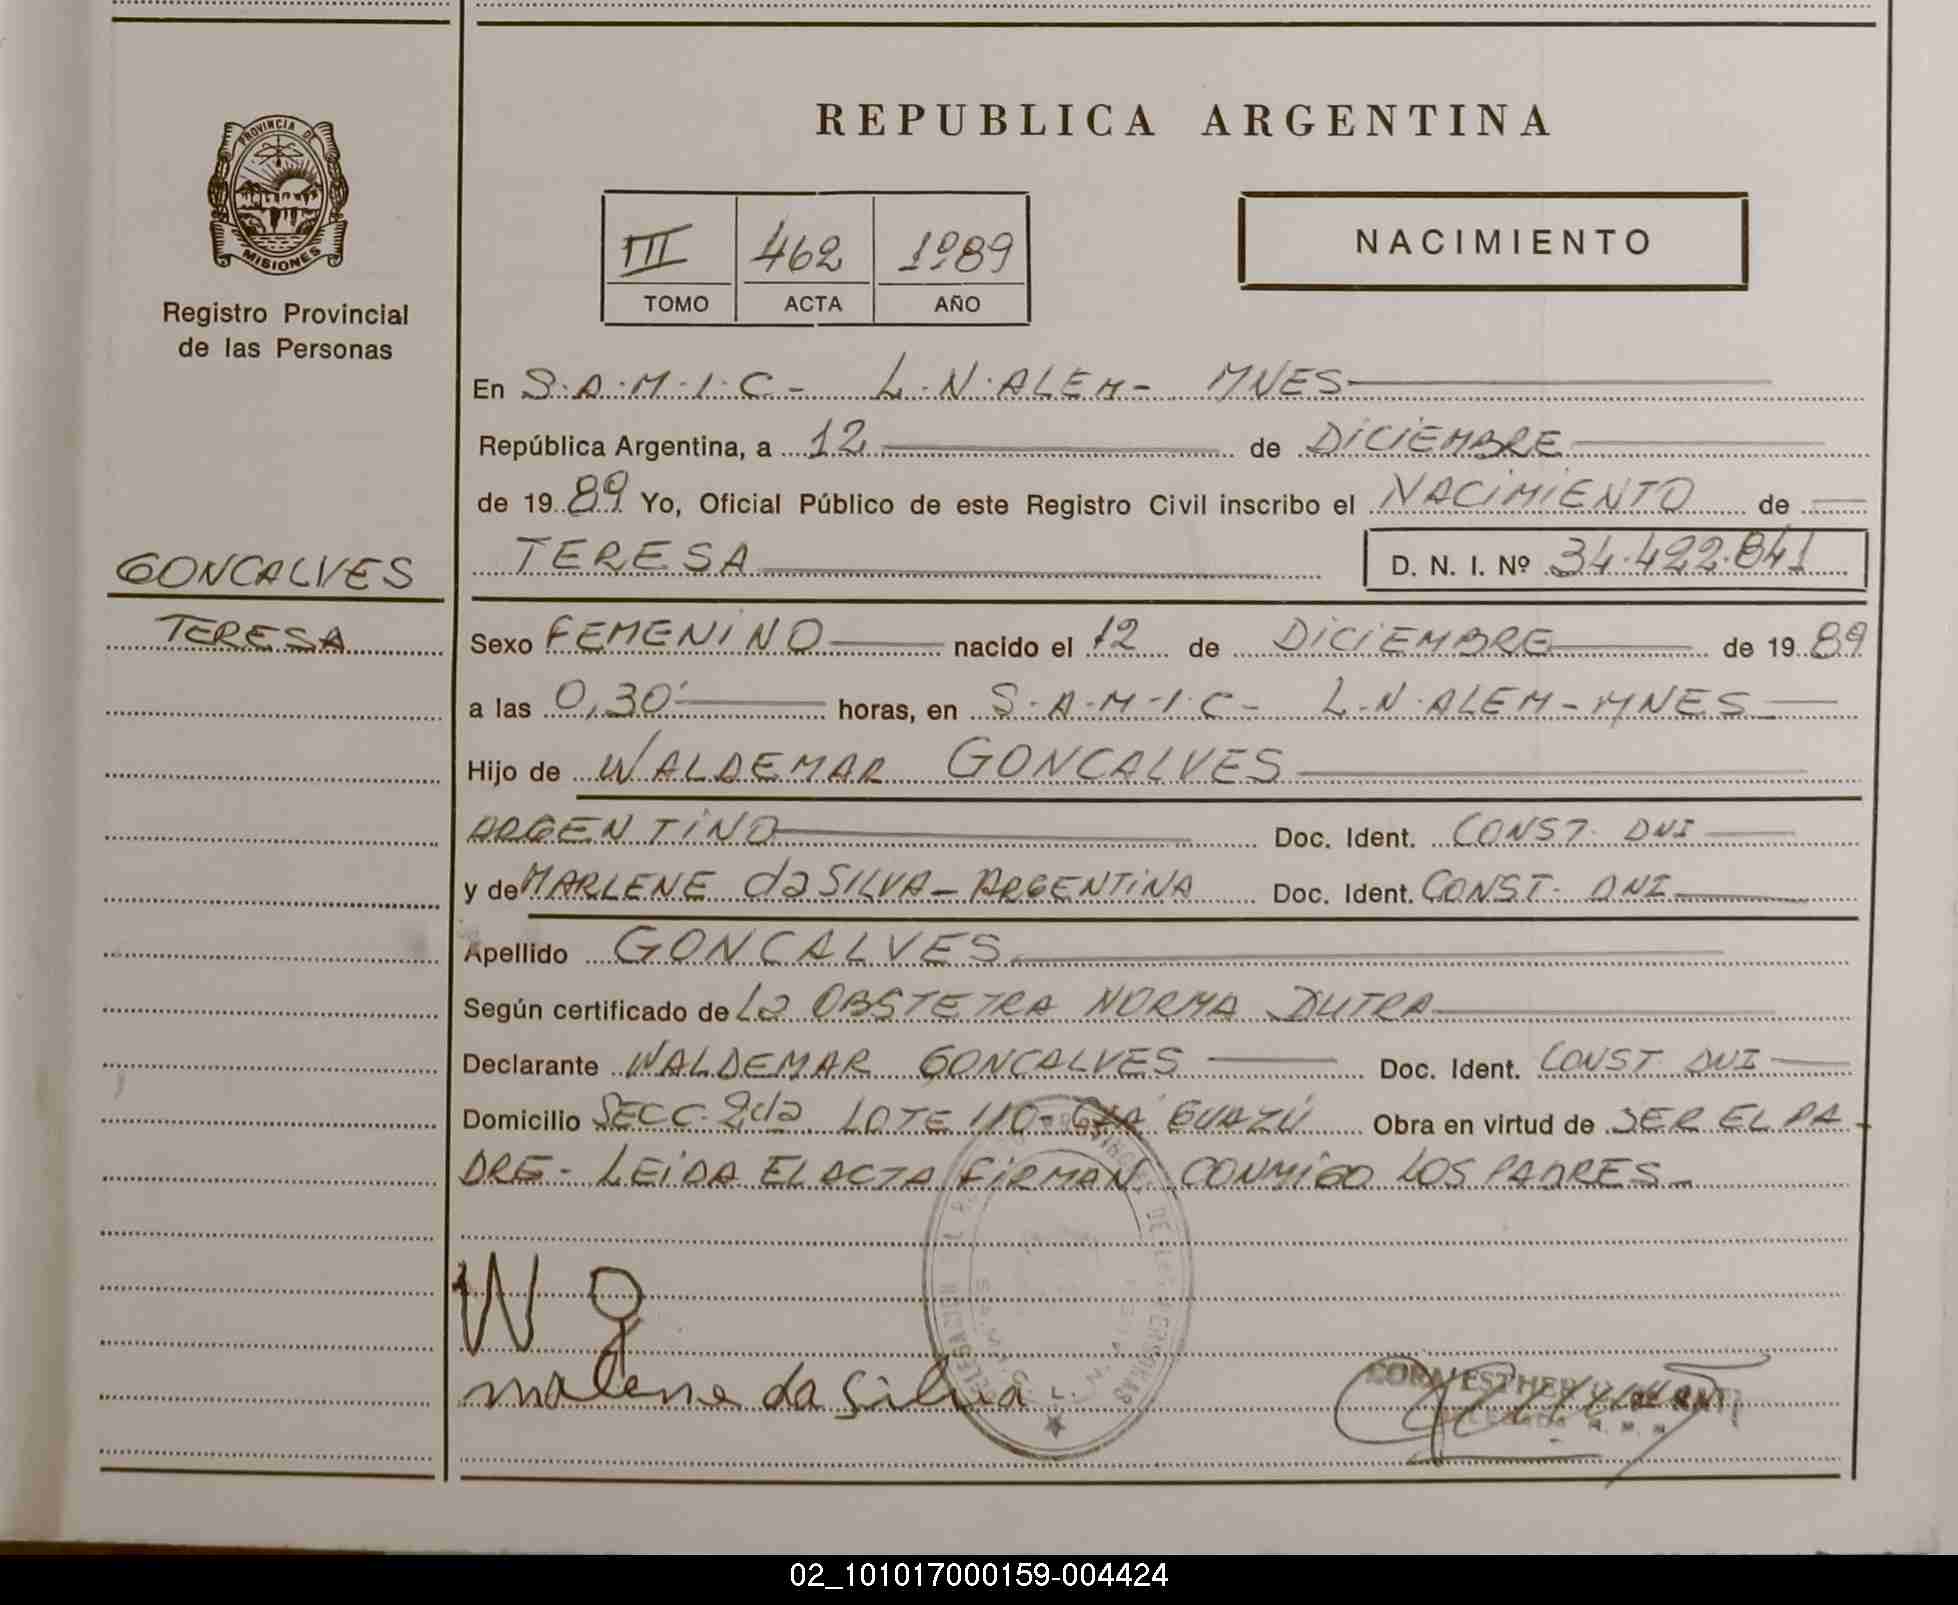 REPUBLICA ARGENTINA
PROVINCIA DE
MISIONES
Registro Provincial
de las Personas
III 462 1989
TOMO ACTA AÑO
NACIMIENTO
En S.A.M.I.C- L.N.ALEM- MNES
República Argentina, a 12 de DICIEMBRE
de 1989 Yo, Oficial Público de este Registro Civil inscribo el NACIMIENTO de
TERESA D. N. I. Nº 34.422.841
GONCALVES
TERESA
Sexo FEMENINO nacido el 12 de DICIEMBRE de 1989
a las 0,30' horas, en S.A.M.I.C- L.N.ALEM-MNES
Hijo de WALDEMAR GONCALVES
ARGENTINO Doc. Ident. CONST. DNI
y de MARLENE da SILVA-ARGENTINA Doc. Ident. CONST. DNI
Apellido GONCALVES
Según certificado de La OBSTETRA NORMA DUTRA
Declarante WALDEMAR GONCALVES Doc. Ident. CONST DNI
Domicilio SECC. 2da LOTE 110- GUAZÚ Obra en virtud de SER EL PA-
DRE- LEIDA EL ACTA FIRMAN CONMIGO LOS PADRES-
W g
malene da Silva
02_101017000159-004424